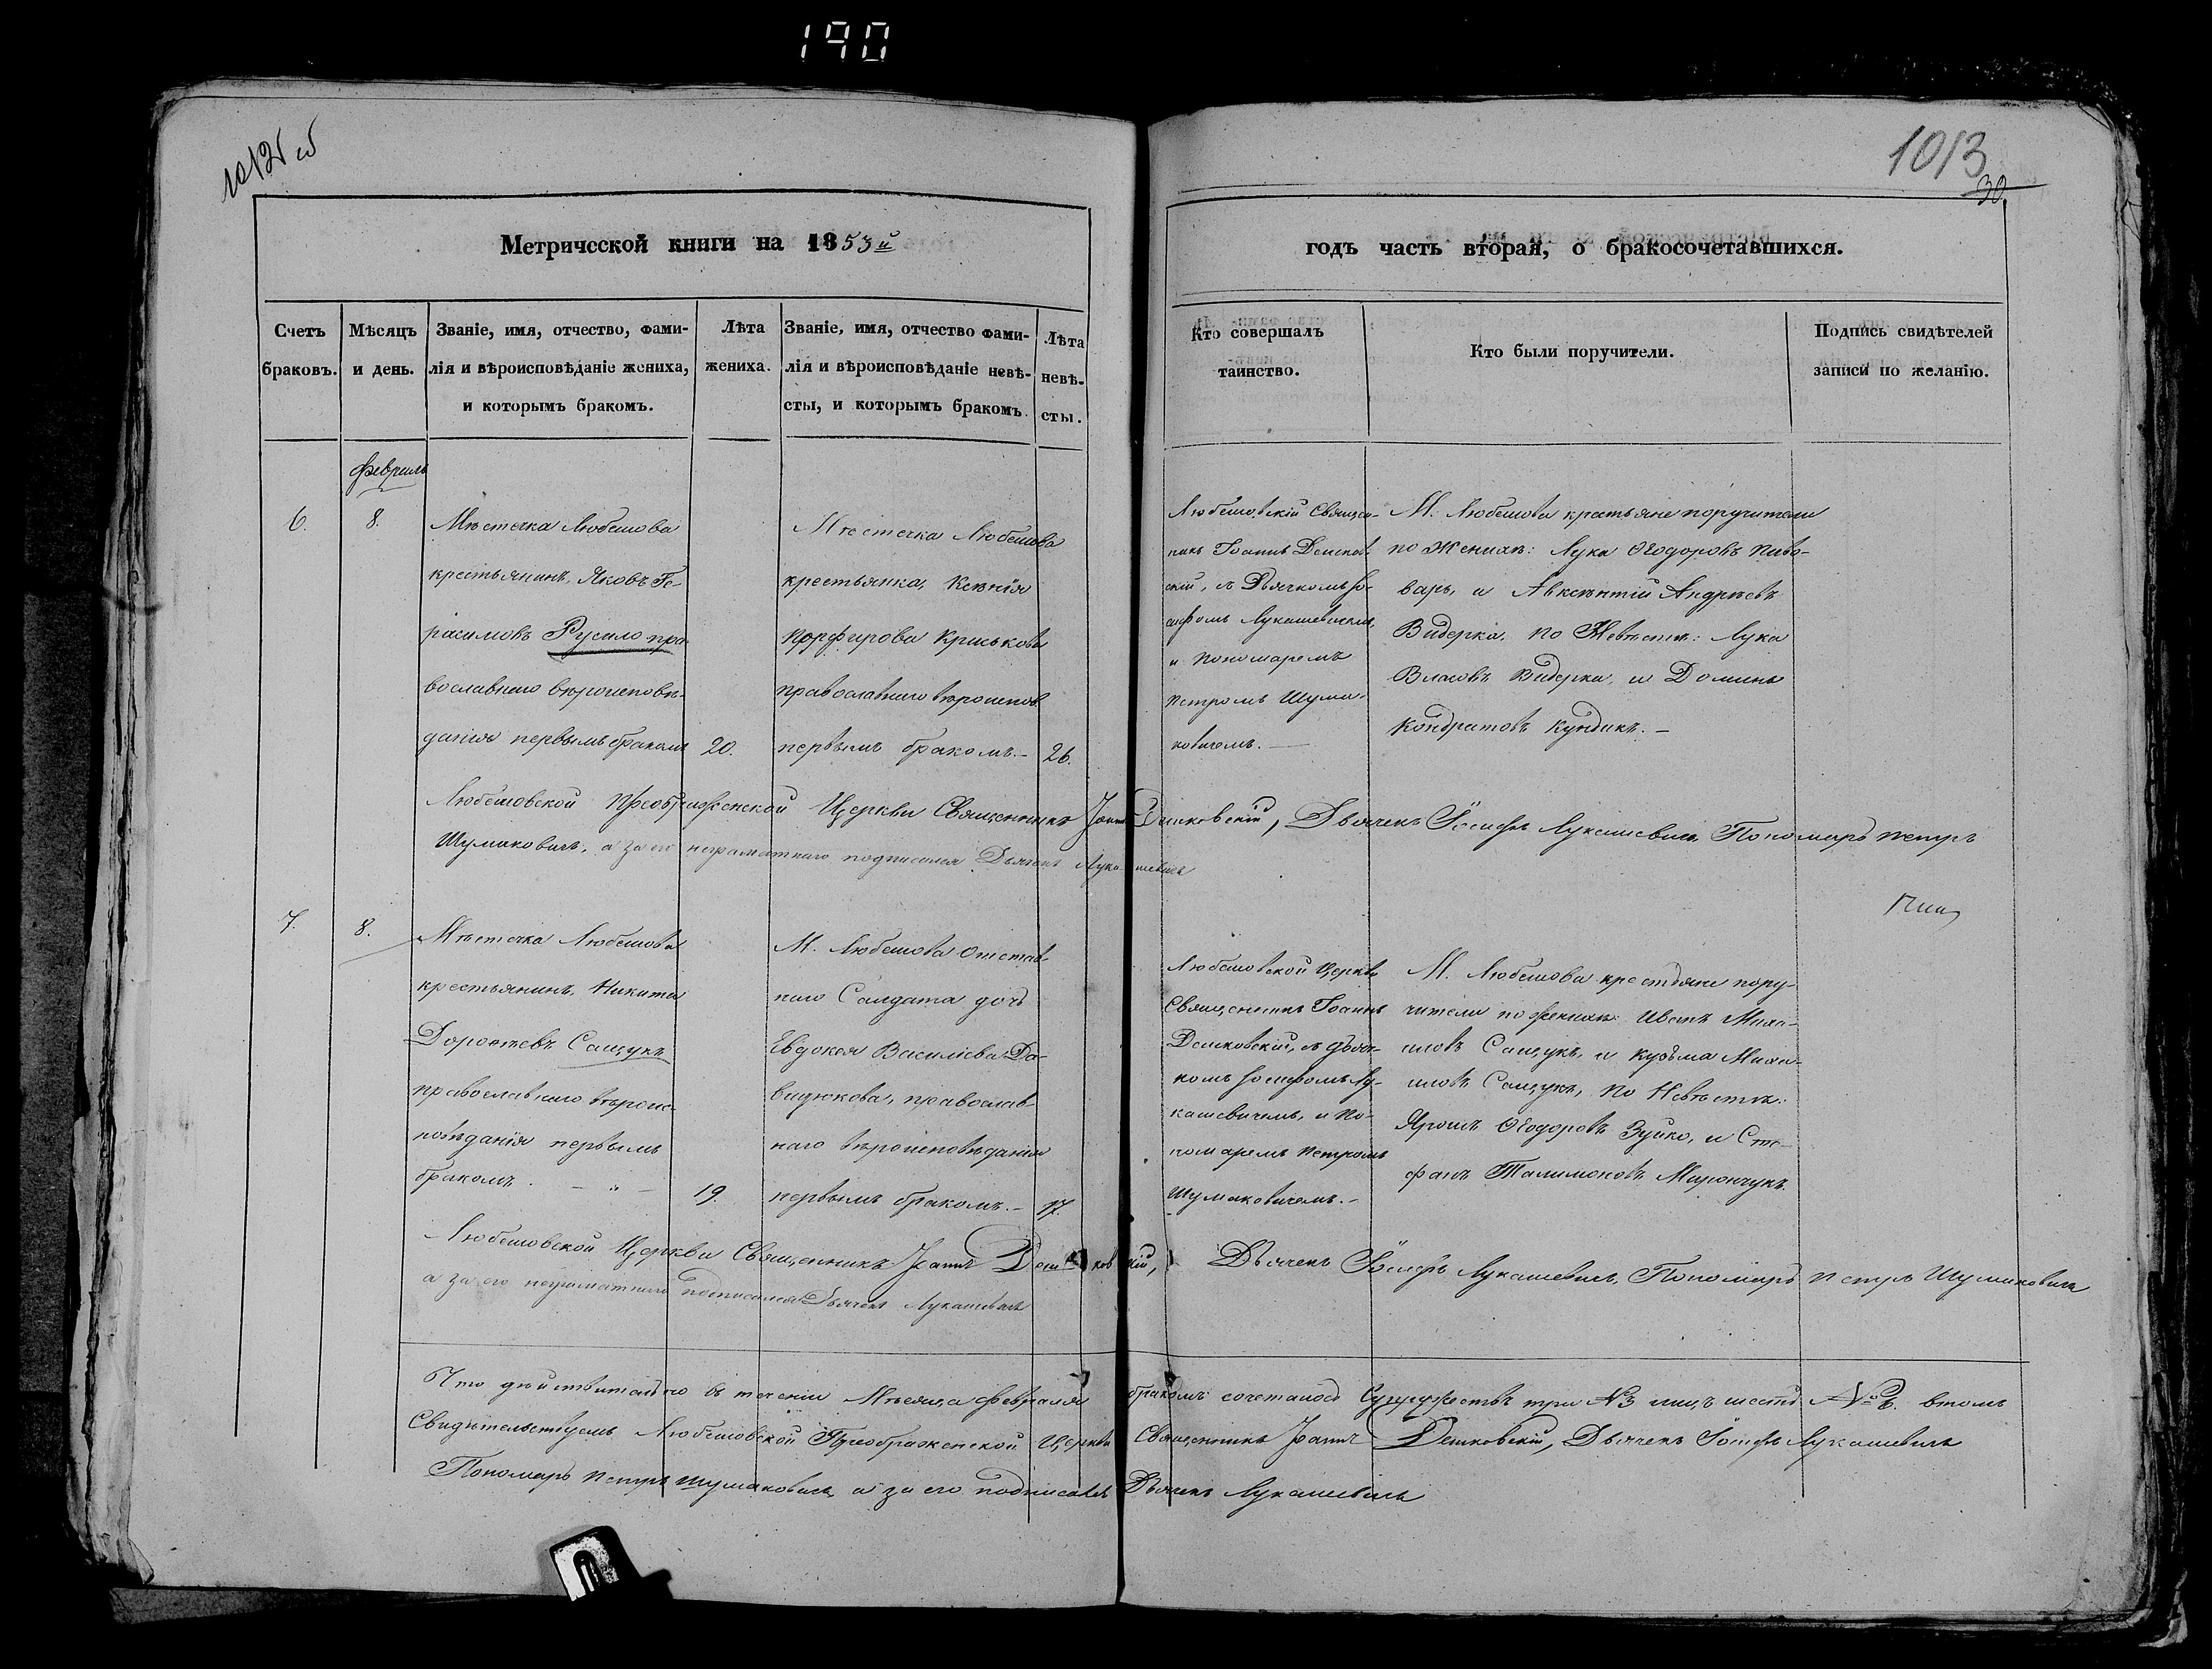 190
1013
30
Метрической книги на 1853й
годъ часть вторая, о бракосочетавшихся.
Счетъ браковъ.
Мѣсяцъ и день.
Званіе, имя, отчество, фами-
лія и вѣроисповѣданіе жениха,
и которымъ бракомъ.
Лѣта
жениха.
Званіе, имя, отчество фами-
лія и вѣроисповѣданіе невѣ-
сты, и которымъ бракомъ.
Лѣта
невѣ-
сты.
Кто совершалъ
таинство.
Кто были поручители.
Подпись свидѣтелей
записи по желанію.
Февраль
6.
8.
Мѣстечка Любешова
крестьянинъ, Яковъ Ге-
расимовъ Русило пра-
вославнаго вѣроисповѣ-
данія первымъ бракомъ
20.
Мѣстечка Любешова
крестьянка, Ксенія
Порфирова Криськова
православнаго вѣроиспов
первымъ бракомъ.-
26.
Любешовскій Священ-
никъ Іоаннъ Дешков-
скій, съ Дьячкомъ Іо-
сифомъ Лукашевичемъ,
и Пономаремъ
Петромъ Шума-
ковичемъ. —
М. Любешова кратьяне поручители
по Женихѣ: Лука Ѳеодоровъ Пиво-
варъ, и Авксентій Андреевъ
Видерка. по Невѣстѣ: Лука
Власовъ Видерка, и Доминъ
Кондратовъ Кундикъ. -
Любешовской Преображенской Церкви Священникъ Іоаннъ Дешковскій, Дьячекъ Іосифъ Лукашевичъ, Пономарь Петръ
Шумаковичъ, а за его неграматнаго подписался Дьячекъ Лукашевичъ
7.
8.
Мѣстечка Любешова
крестьянинъ, Никита
Доровтевъ Сащукъ
православнаго вѣроис-
повѣданія первымъ
бракомъ. — " —
19.
М. Любешова Отстав-
наго Солдата дочь
Евдокея Василіева Да-
видюкова, православ-
наго вѣроисповѣданія
первымъ бракомъ. -
17.
Любешовской Церкви
Священникъ Іоаннъ
Дешковскій, съ Дьяч-
комъ Іосифомъ Лу-
кашевичемъ, и По-
номаремъ Петромъ
Шумаковичемъ. -
М. Любешова крестьяне пору-
чители по женихѣ: Иванъ Миха-
иловъ Сащукъ, и Кузьма Миха-
иловъ Сащукъ, по Невѣстѣ:
Ярошъ Ѳеодоровъ Зуйко, и Сте-
фанъ Талимоновъ Мирончукъ.
Любешовской Церкви Священникъ Іоаннъ Дешковскій, Дьячекъ Іосифъ Лукашевичъ, Пономарь Петръ Шумаковичъ
а за его неграматнаго подписался Дьячекъ Лукашевичъ
Что дѣйствительно въ теченіи Мѣсяца Февраля бракомъ сочеталось Супружествъ три №3 лицъ шесть №6. втомъ
Свидѣтельствуемъ Любешовской Преображенской Церкви Священникъ Іоаннъ Дешковскій, Дьячекъ Іосифъ Лукашевичъ
Пономарь Петръ Шумаковичъ, а за его подписался Дьячекъ Лукашевичъ